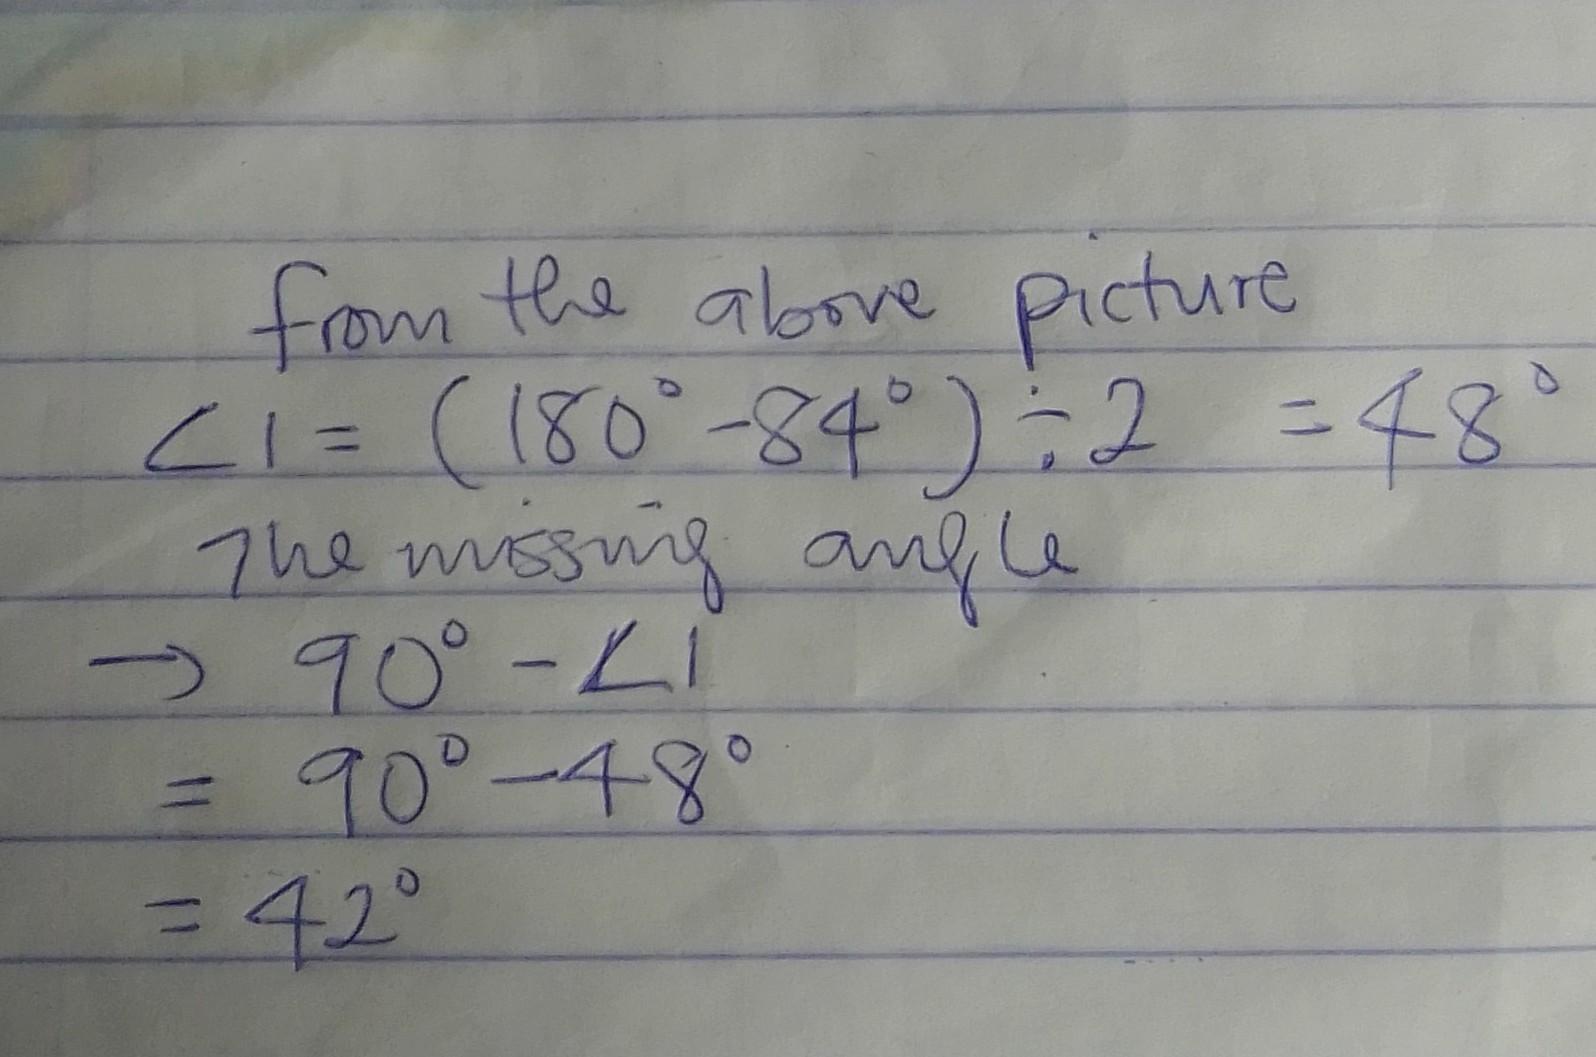 from the above picture
∠1 = (180° - 84°) ÷ 2 = 48°
The missing angle
→ 90° - ∠1
= 90° - 48°
= 42°